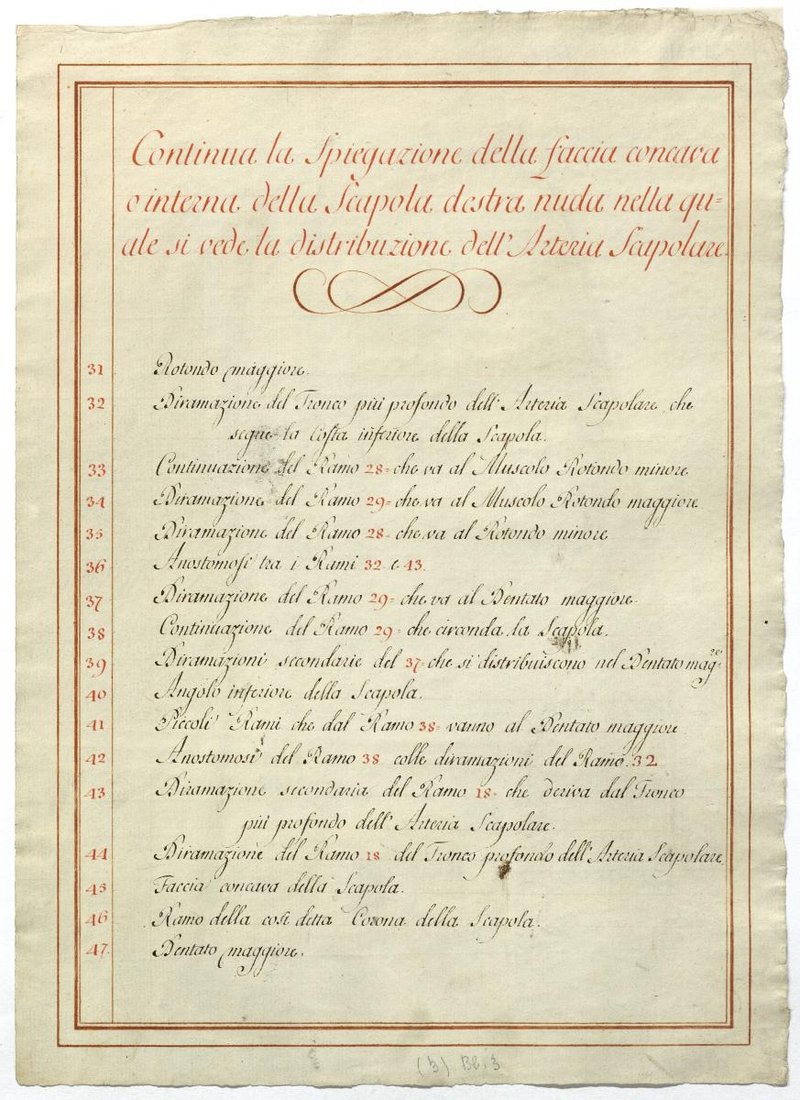 Continua la Spiegazione della faccia concava
o interna della Scapola destra nuda nella qu=
ale si vede la distribuzione dell'Arteria Scapolare.
31 Rotondo maggiore.
32 Diramazione del Tronco più profondo dell'Arteria Scapolare, che
segue la Costa inferiore della Scapola.
33 Continuazione del Ramo 28= che va al Muscolo Rotondo minore
34 Diramazione del Ramo 29= che va al Muscolo Rotondo maggiore
35 Diramazione del Ramo 28= che va al Rotondo minore
36 Anostomosi tra i Rami 32 e 43.
37 Diramazione del Ramo 29= che va al Dentato maggiore.
38 Continuazione del Ramo 29= che circonda la Scapola.
39 Diramazioni secondarie del 37= che si distribuiscono nel Dentato mag.re
40 Angolo inferiore della Scapola.
41 Piccoli Rami che dal Ramo 38= vanno al Dentato maggiore
42 Anostomosi del Ramo 38 colle diramazioni del Ramo. 32
43 Diramazione secondaria del Ramo 18= che deriva dal Tronco
più profondo dell'Arteria Scapolare.
44 Diramazione del Ramo 18 del Tronco profondo dell'Arteria Scapolare
45 Faccia concava della Scapola.
46 Ramo della così detta Corona della Scapola.
47. Dentato maggiore.
(b) Bl. 3